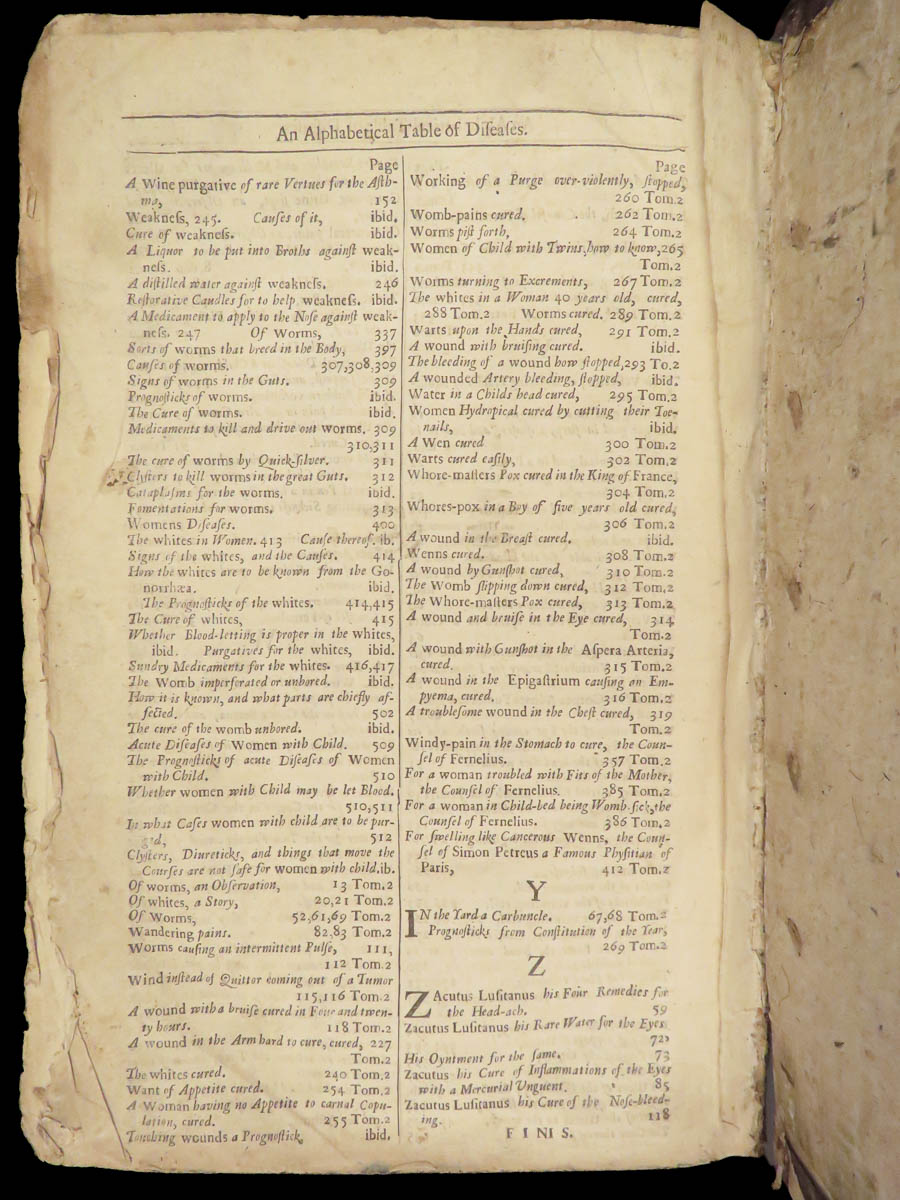 An Alphabetical Table of Diſeaſes.
Page
A Wine purgative of rare Vertues for the Aſth-
ma, 152
Weakneſs, 245. Cauſes of it, ibid.
Cure of weakneſs. ibid.
A Liquor to be put into Broths againſt weak-
neſs. ibid.
A diſtilled water againſt weakneſs. 246
Reſtorative Candles for to help weakneſs. ibid.
A Medicament to apply to the Noſe againſt weak-
neſs. 247 Of Worms, 337
Sorts of worms that breed in the Body, 397
Cauſes of worms. 307,308,309
Signs of worms in the Guts. 309
Prognoſticks of worms. ibid.
The Cure of worms. ibid.
Medicaments to kill and drive out worms. 309
310,311
The cure of worms by Quick-ſilver. 311
Clyſters to kill worms in the great Guts. 312
Cataplaſms for the worms. ibid.
Fomentations for worms. 313
Womens Diſeaſes. 400
The whites in Women. 413 Cauſe thereof. ib.
Signs of the whites, and the Cauſes. 414
How the whites are to be known from the Go-
norrhæa. ibid.
The Prognoſticks of the whites. 414,415
The Cure of whites, 415
Whether Blood-letting is proper in the whites,
ibid. Purgatives for the whites, ibid.
Sundry Medicaments for the whites. 416,417
The Womb imperforated or unbored. ibid.
How it is known, and what parts are chiefly af-
fected. 502
The cure of the womb unbored. ibid.
Acute Diſeaſes of Women with Child. 509
The Prognoſticks of acute Diſeaſes of Women
with Child. 510
Whether women with Child may be let Blood.
510,511
In what Caſes women with child are to be pur-
ged, 512
Clyſters, Diureticks, and things that move the
Courſes are not ſafe for women with child. ib.
Of worms, an Obſervation, 13 Tom.2
Of whites, a Story, 20,21 Tom.2
Of Worms, 52,61,69 Tom.2
Wandering pains. 82,83 Tom.2
Worms cauſing an intermittent Pulſe, 111,
112 Tom.2
Wind inſtead of Quittor coming out of a Tumor
115,116 Tom.2
A wound with a bruiſe cured in Four and twen-
ty hours. 118 Tom.2
A wound in the Arm hard to cure, cured, 227
Tom.2
The whites cured. 240 Tom.2
Want of Appetite cured. 254 Tom.2
A Woman having no Appetite to carnal Copu-
lation, cured. 255 Tom.2
Touching wounds a Prognoſtick, ibid.
Page
Working of a Purge over-violently, ſtopped,
260 Tom.2
Womb-pains cured. 262 Tom.2
Worms piſt forth, 264 Tom.2
Women of Child with Twins, how to know, 265
Tom.2
Worms turning to Excrements, 267 Tom.2
The whites in a Woman 40 years old, cured,
288 Tom.2 Worms cured. 289 Tom.2
Warts upon the Hands cured, 291 Tom.2
A wound with bruiſing cured. ibid.
The bleeding of a wound how ſtopped, 293 To.2
A wounded Artery bleeding, ſtopped, ibid.
Water in a Childs head cured, 295 Tom.2
Women Hydropical cured by cutting their Toe-
nails, ibid.
A Wen cured 300 Tom.2
Warts cured eaſily, 302 Tom.2
Whore-maſters Pox cured in the King of France,
304 Tom.2
Whores-pox in a Boy of five years old cured,
306 Tom.2
A wound in the Breaſt cured. ibid.
Wenns cured. 308 Tom.2
A wound by Gunſhot cured, 310 Tom.2
The Womb ſlipping down cured, 312 Tom.2
The Whore-maſters Pox cured, 313 Tom.2
A wound and bruiſe in the Eye cured, 314
Tom.2
A wound with Gunſhot in the Aſpera Arteria,
cured. 315 Tom.2
A wound in the Epigaſtrium cauſing an Em-
pyema, cured. 316 Tom.2
A troubleſome wound in the Cheſt cured, 319
Tom.2
Windy-pain in the Stomach to cure, the Coun-
ſel of Fernelius. 357 Tom.2
For a woman troubled with Fits of the Mother,
the Counſel of Fernelius. 385 Tom.2
For a woman in Child-bed being Womb-ſick, the
Counſel of Fernelius. 386 Tom.2
For ſwelling like Cancerous Wenns, the Coun-
ſel of Simon Petreus a Famous Phyſitian of
Paris, 412 Tom.2
Y
IN the Yard a Carbuncle. 67,68 Tom.2
Prognoſticks from Conſtitution of the Year,
269 Tom.2
Z
ZAcutus Luſitanus his Four Remedies for
the Head-ach. 59
Zacutus Luſitanus his Rare Water for the Eyes
72,
His Oyntment for the ſame. 73
Zacutus his Cure of Inflammations of the Eyes
with a Mercurial Unguent. 85
Zacutus Luſitanus his Cure of the Noſe-bleed-
ing. 118
FINIS.